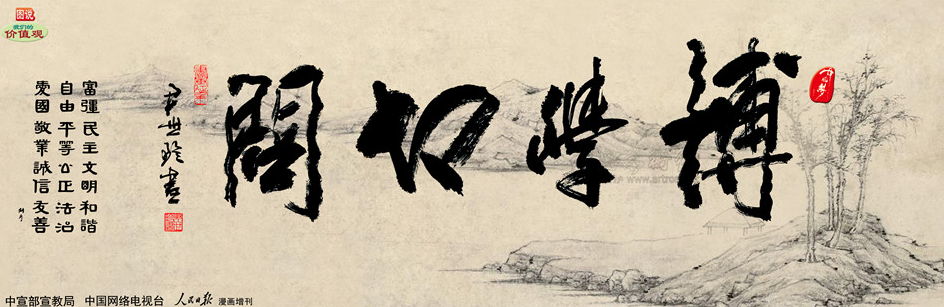 图说
我们的
价值观
中国梦
博學切問
富強民主文明和諧
自由平等公正法治
愛國敬業誠信友善
中宣部宣教局 中国网络电视台 人民日报 漫画增刊